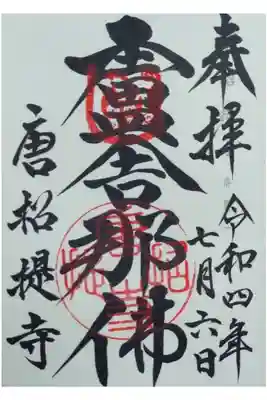 奉拝
令和四年
七月六日
盧舎那佛
唐招提寺